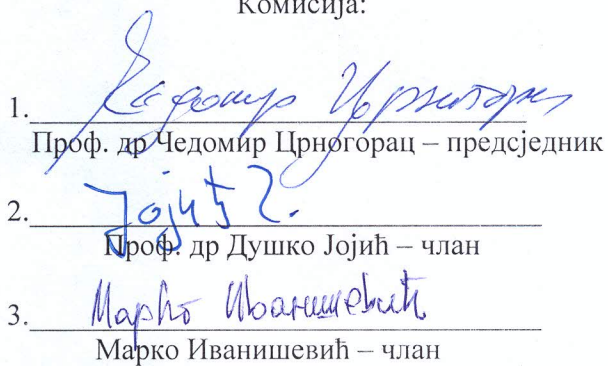 Комисија:
1. Чедомир Црногорац
Проф. др Чедомир Црногорац – предсједник
2. Јојић Д.
Проф. др Душко Јојић – члан
3. Марко Иванишевић
Марко Иванишевић – члан